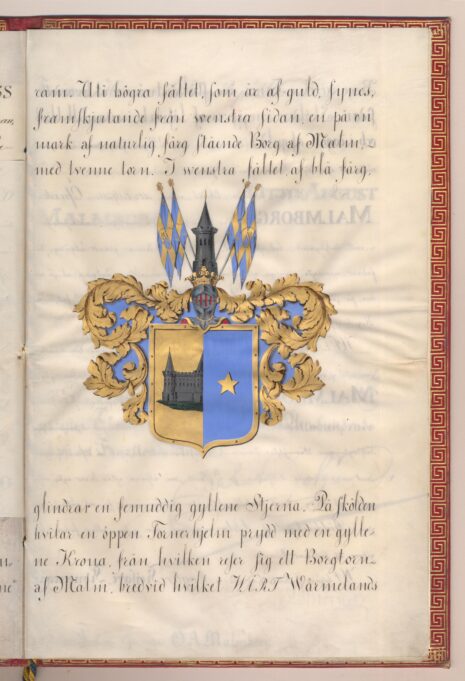 ram. Uti högra fältet, som är af guld, synes,
framskjutande från wenstra sidan, en på en
mark af naturlig färg stående Borg af Malm,
med tvenne torn. I wenstra fältet af blå färg,
glindrar en femuddig gyllene Stjerna. På skölden
hvilar en öppen Tornerhjelm prydd med en gylle-
ne Krona, från hvilken reser sig ett Borgtorn
af Malm, bredvid hvilket WÅRT Wärmelands